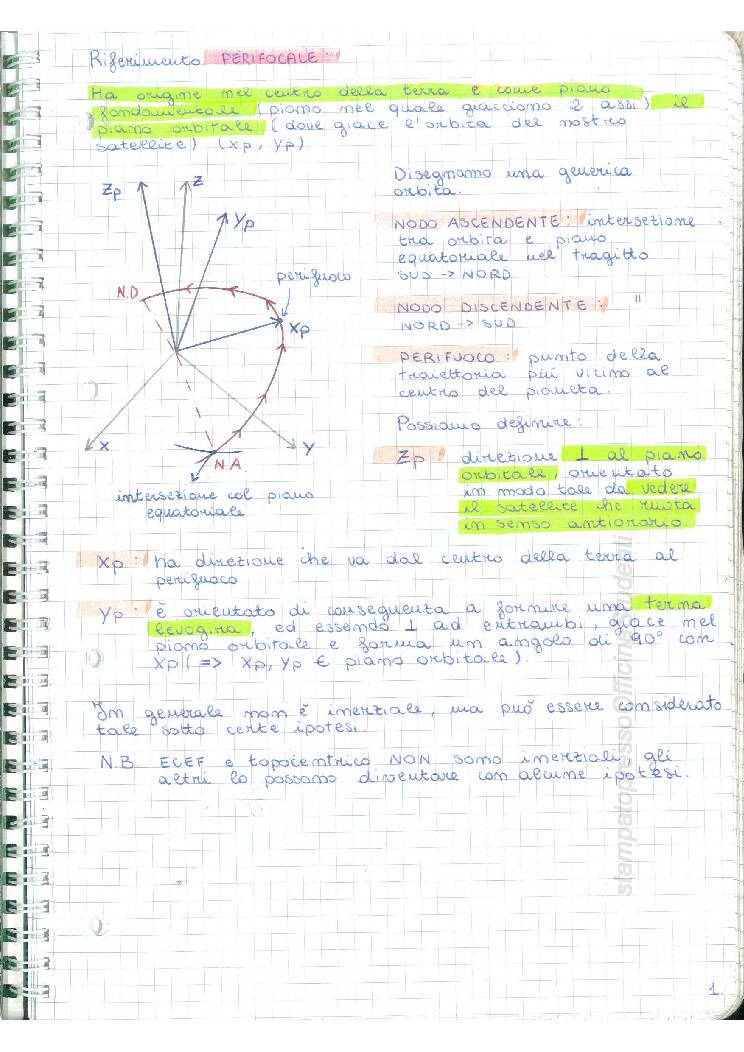 Riferimento PERIFOCALE:
Ha origine nel centro della terra e come piano
fondamentale (piano nel quale giacciono 2 assi) il
piano orbitale (dove giace l'orbita del nostro
satellite) (xp, yp)
Disegnamo una generica
orbita.
NODO ASCENDENTE: intersezione
tra orbita e piano
equatoriale nel tragitto
SUD -> NORD
NODO DISCENDENTE: "
NORD -> SUD
PERIFUOCO: punto della
traiettoria più vicino al
centro del pianeta.
Possiamo definire:
Zp: direzione ⊥ al piano
orbitale, orientato
in modo tale da vedere
il satellite che ruota
in senso antiorario
Zp
Z
Yp
perifuoco
N.D
Xp
X
Y
N.A.
intersezione col piano
equatoriale
Xp: ha direzione che va dal centro della terra al
perifuoco
Yp: è orientato di conseguenza a fornire una terna
levogira, ed essendo ⊥ ad entrambi, giace nel
piano orbitale e forma un angolo di 90° con
Xp (=> Xp, Yp ∈ piano orbitale).
In generale non è inerziale, ma può essere considerato
tale sotto certe ipotesi.
N.B ECEF e topocentrico NON sono inerziali gli
altri lo possono diventare con alcune ipotesi.
1.